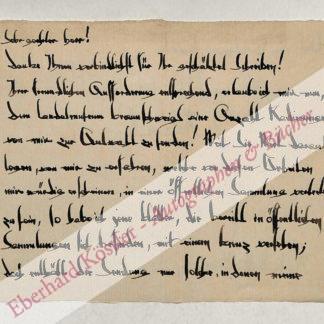 Sehr geehrter Herr!
Danke Ihnen verbindlichst für Ihr geschätztes Schreiben!
Ihrer freundlichen Aufforderung entsprechend, erlaube ich mir nun,
dem Landesmuseum braunschweig eine Anzahl
von mir zur Auswahl zu senden!
von mir zu erfahren, welche von diesen Arbeiten
mir würdig erscheinen, in einer öffentlichen Sammlung vertreten
zu sein, so habe ich jene die bereits in öffentlichen
Sammlungen sich befinden, mit einem kreuz versehen;
enthält die Sendung nur solche, in denen meine
Eberhard Köstler - Autographen & Bücher